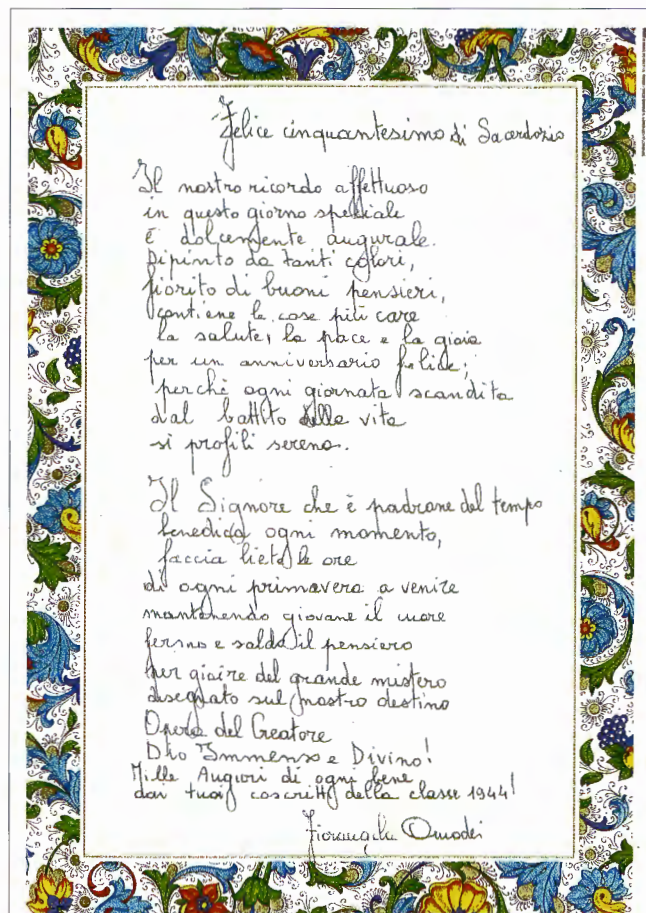 Felice cinquantesimo di Sacerdozio
Il nostro ricordo affettuoso
in questo giorno speciale
è dolcemente augurale.
Dipinto da tanti colori,
fiorito di buoni pensieri,
contiene le cose più care
la salute, la pace e la gioia
per un anniversario felice;
perchè ogni giornata scandita
dal battito della vita
si profili serena.
Il Signore che è padrone del tempo
benedica ogni momento,
faccia liete le ore
di ogni primavera a venire
mantenendo giovane il cuore
fermo e saldo il pensiero
per gioire del grande mistero
disegnato sul nostro destino
Opera del Creatore
Dio Immenso e Divino!
Mille Auguri di ogni bene
dai tuoi coscritti della classe 1944!
Fiorangela Omodei